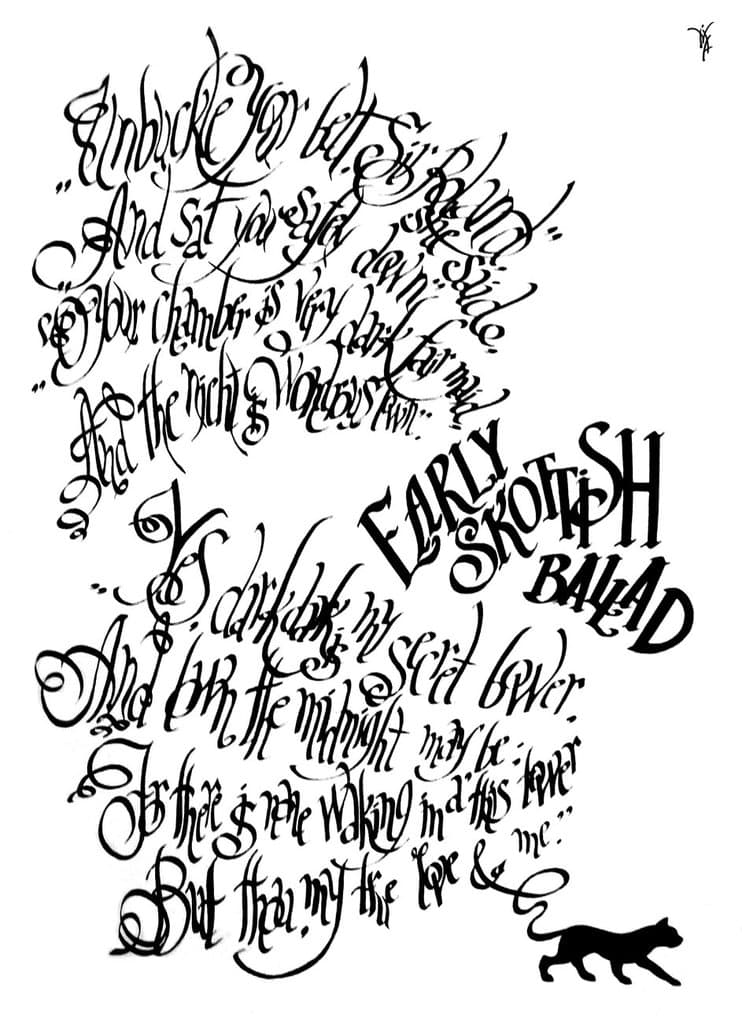 „Unbuckle your belt, Sir Roland"
she saide.
And sat you safely down"
"O your chamber is very dark fair maid,
"And the night is wondrous lown."
EARLY
SKOTTISH
BALLAD
„Yes, dark, dark is my secret bower,
And lown the midnight may be;
For there is none waking in a' this tower
But thou, my true love & me."